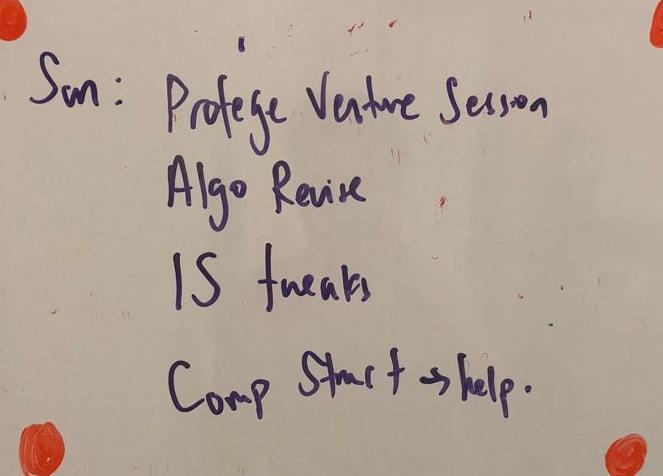 Sun: Protege Venture Session
Algo Revise
IS tweaks
Comp Struct → help.